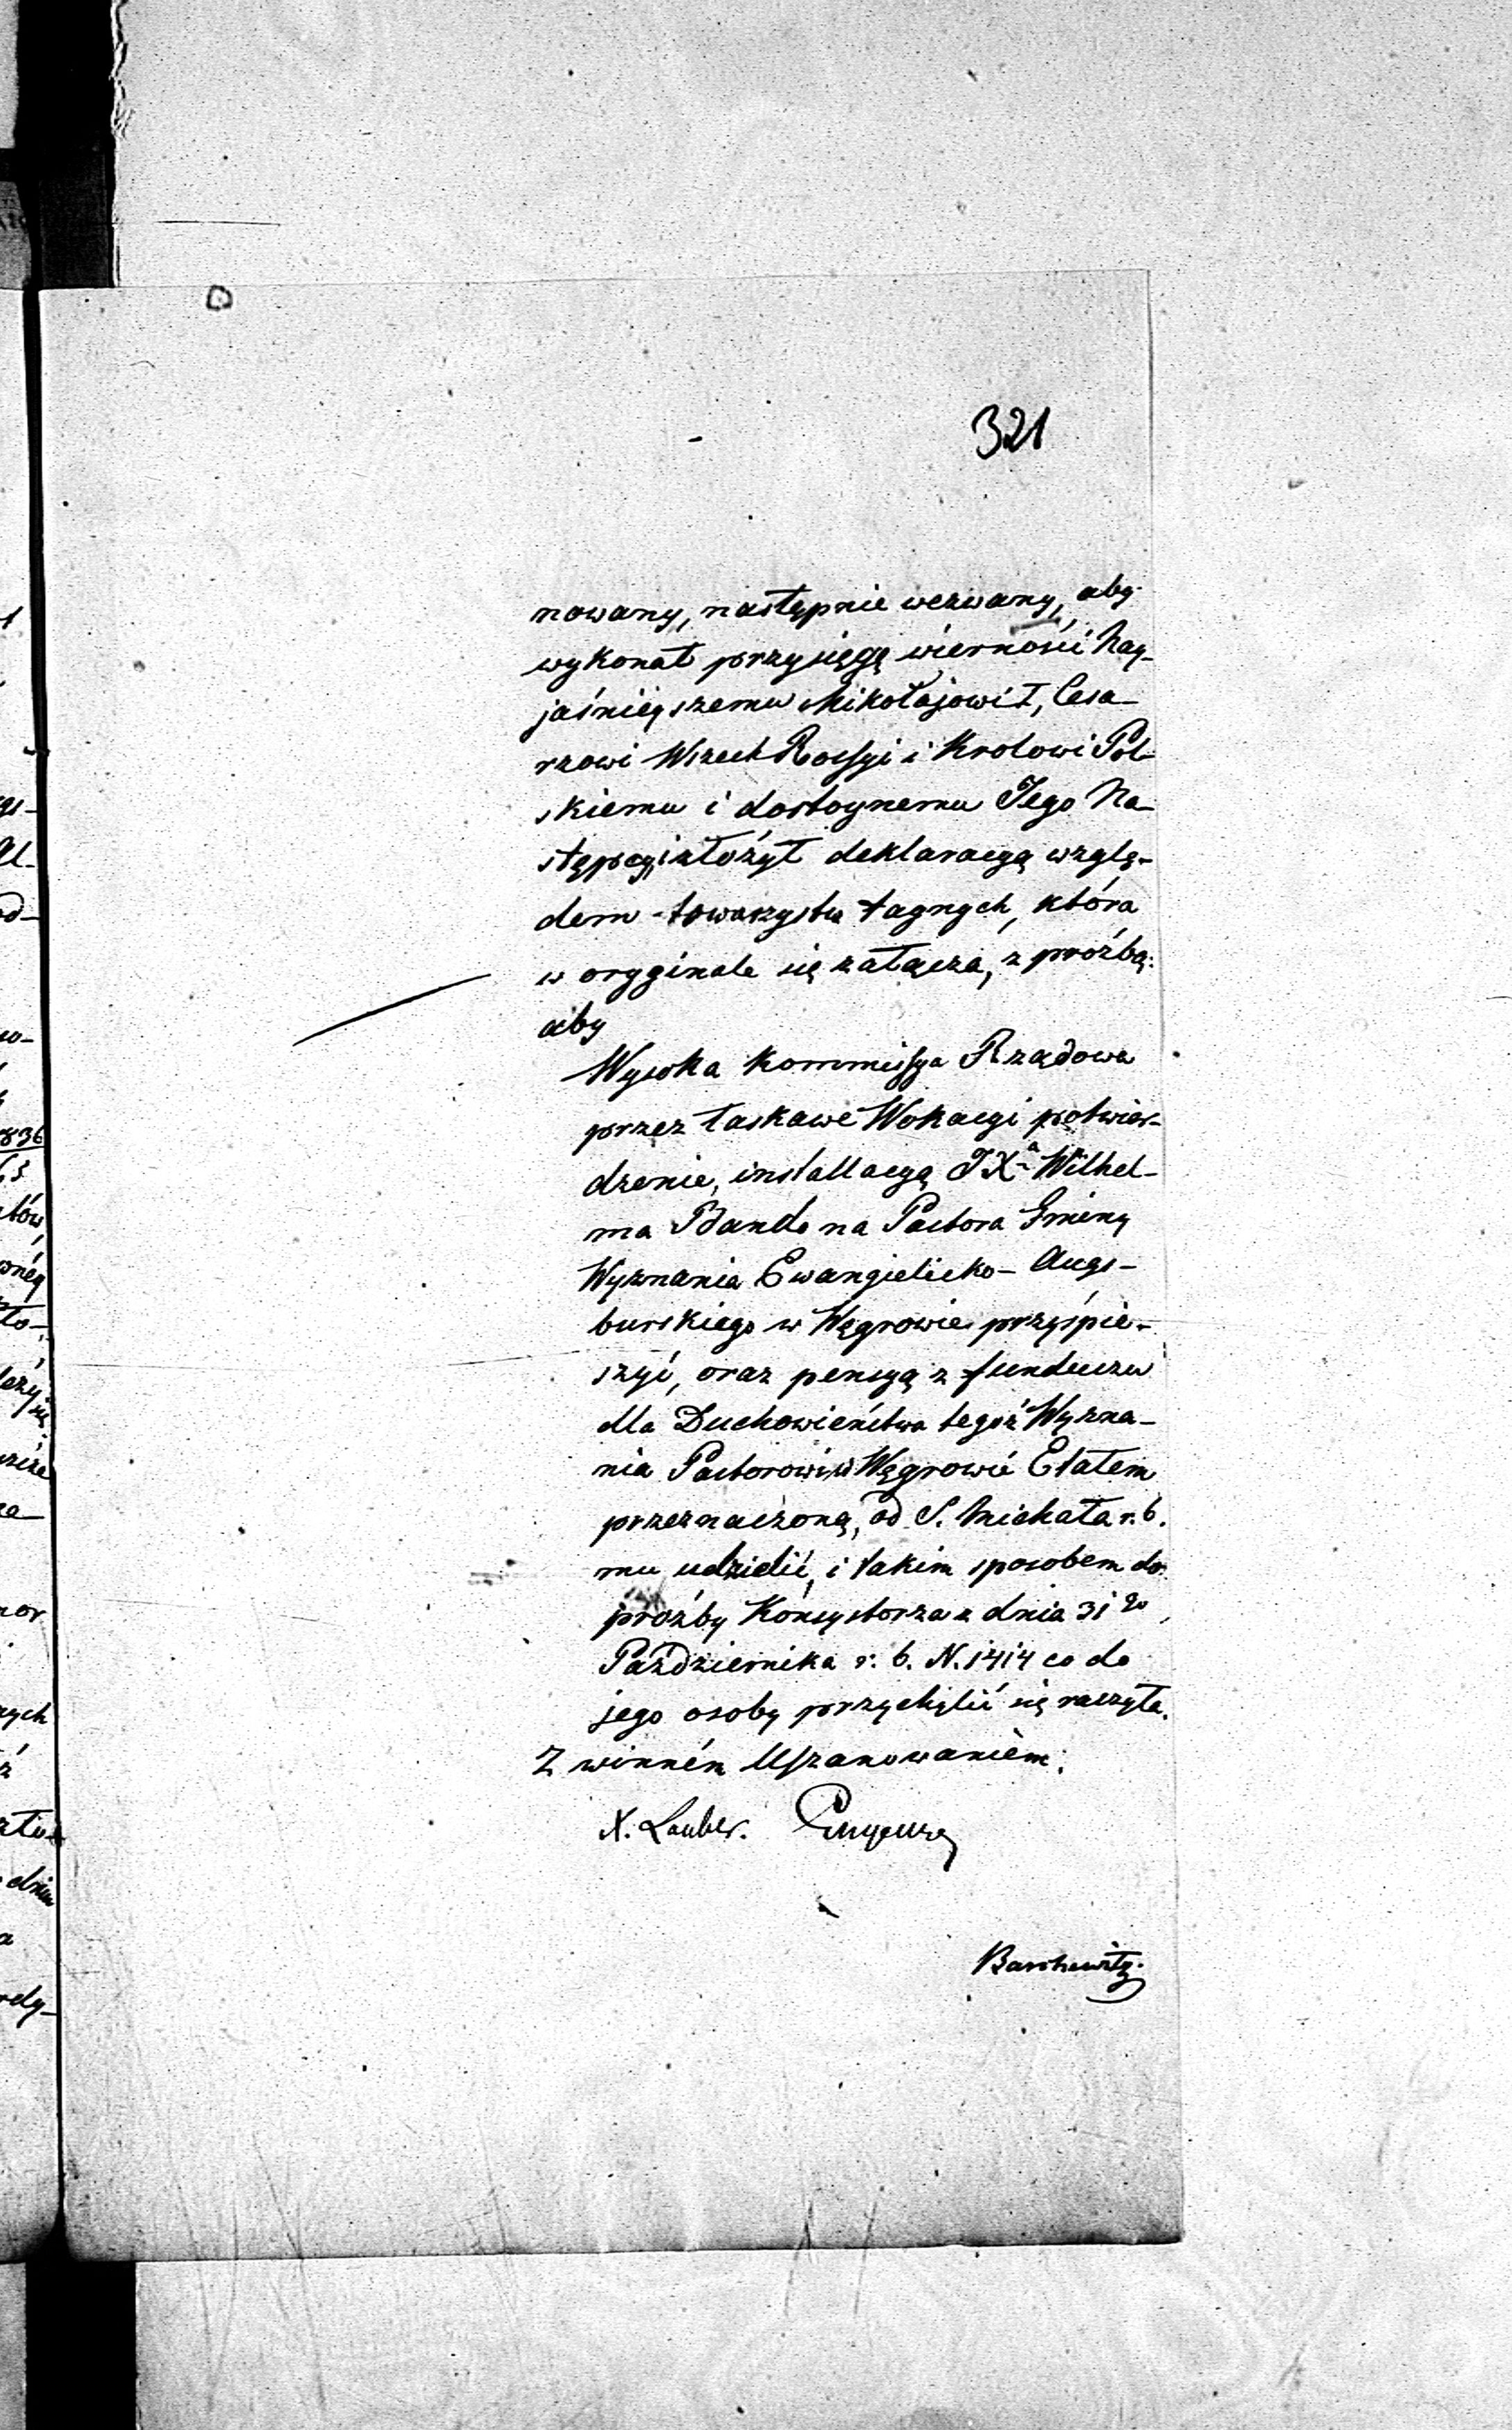 321
nowany, następnie wezwany, aby
wykonał przysięgę wierności Nay-
jaśnieyszemu Mikołajowi I, Cesa-
rzowi Wszech Rossyi i Krolowi Pol-
skiemu i dostoynemu Jego Na-
stępcy, i złożył deklaracyą wzglę-
dem towarzystw taynych, która
w oryginale się załącza, z prozbą:
aby
Wysoka Kommissya Rządowa
przez łaskawe Wokacyi potwier-
dzenie, installacyą JXa Wilhel-
ma Bando na Pastora Gminy
Wyznania Ewangielicko-Augs-
burskiego w Węgrowie przyśpie-
szyć, oraz pensyą z funduszu
dla Duchowieństwa tegoż Wyzna-
nia Pastorowi w Węgrowie Etatem
przeznaczoną, od S. Michała r. b.
mu udzielić, i takim sposobem do
proźby Konsystorza z dnia 31go
Października r. b. N. 1414 co do
jego osoby przychylić się raczyła.
Z winném Uszanowaniem.
X. Lauber.